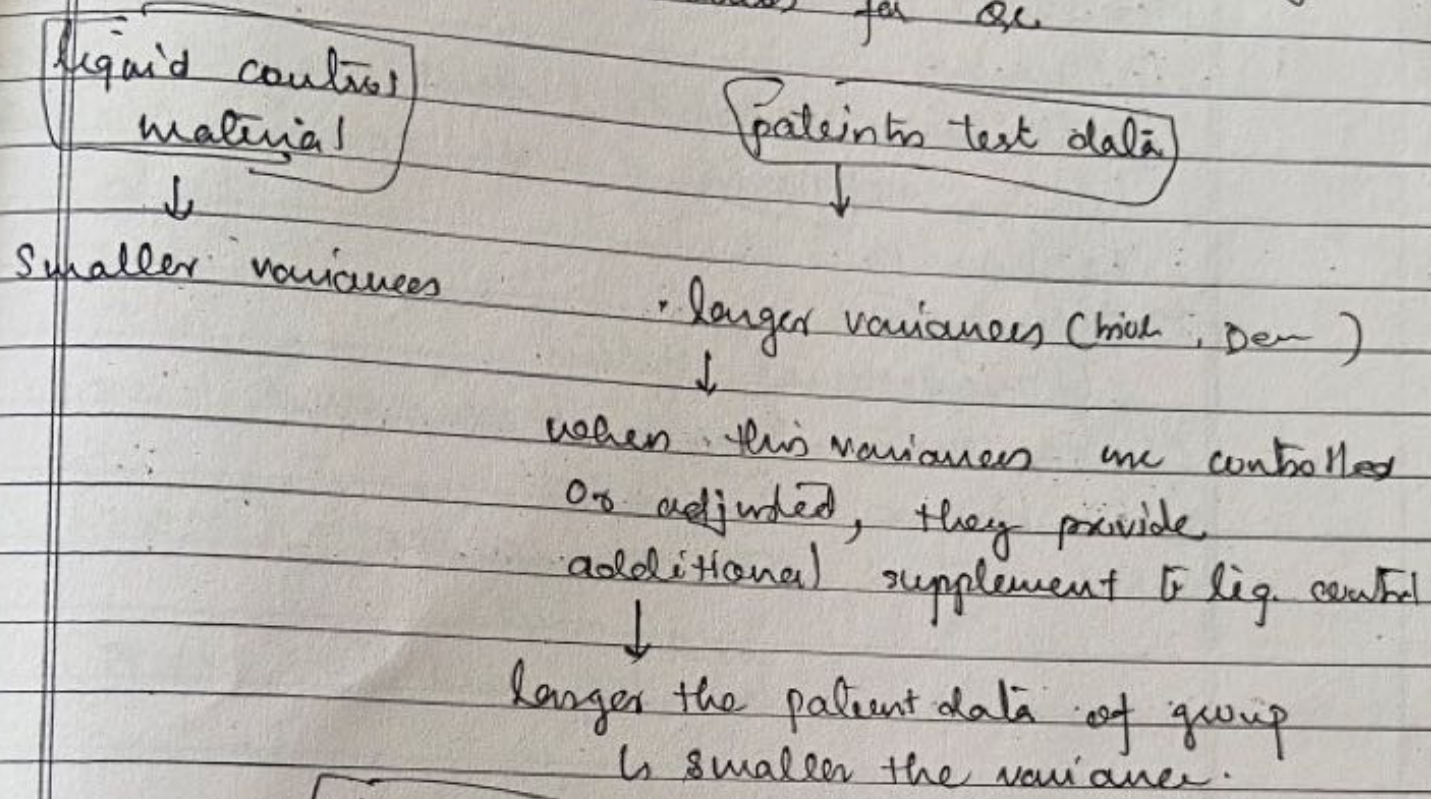 for QC
liquid control
material
pateints test data
↓
↓
Smaller variances
. larger variances ( , Dem )
↓
when this variances are controlled
or adjusted, they provide
additional supplement to liq. control
↓
larger the patient data of group
↳ smaller the variance.